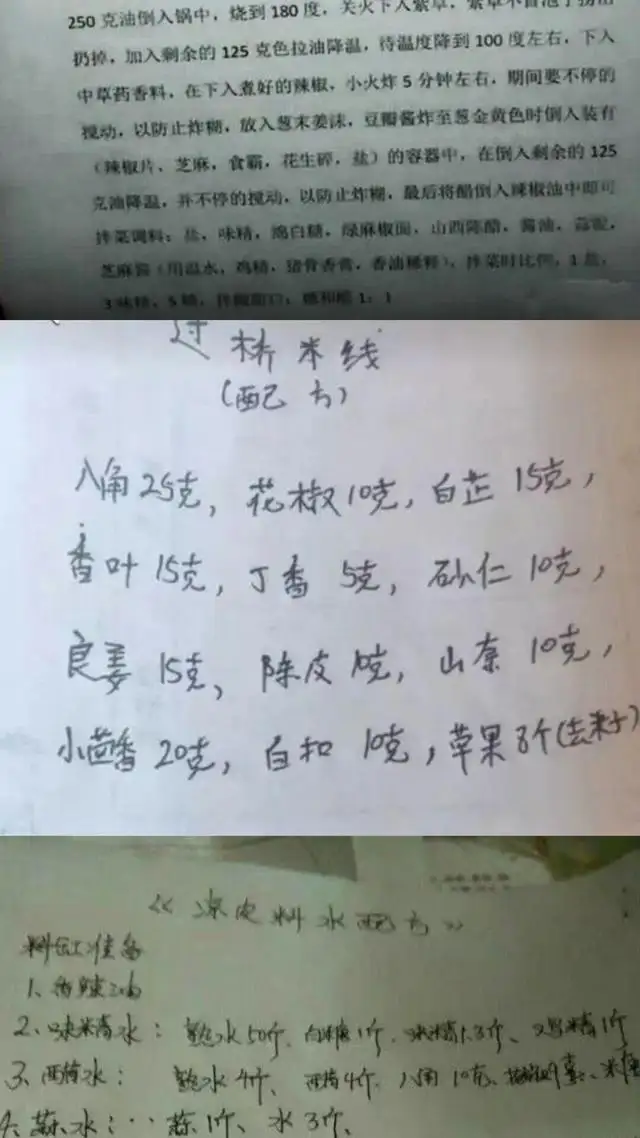 250 克油倒入锅中，烧到 180 度，关火下入紫草，紫草不冒泡了捞出
扔掉，加入剩余的 125 克色拉油降温，待温度降到 100 度左右，下入
中草药香料，在下入煮好的辣椒，小火炸 5 分钟左右，期间要不停的
搅动，以防止炸糊，放入葱末姜沫，豆瓣酱炸至葱金黄色时倒入装有
（辣椒片、芝麻，食霸，花生碎，盐）的容器中，在倒入剩余的 125
克油降温，并不停的搅动，以防止炸糊，最后将醋倒入辣椒油中即可
拌菜调料：盐，味精，绵白糖，绿麻椒面，山西陈醋，酱油，蒜泥，
芝麻酱（用温水，鸡精，猪骨香膏，香油稀释），拌菜时比例，1 盐，
3 味精，5 糖，糖和醋 1：1
过桥米线
（配方）
八角25克，花椒10克，白芷15克，
香叶15克，丁香5克，砂仁10克，
良姜15克，陈皮10克，山奈10克，
小茴香20克，白扣10克，草果8个(去籽)
《凉皮料水配方》
料缸准备
1、香辣油
2、味精水：熟水50斤、白糖1斤、味精1.3斤、鸡精1斤
3、西茄水：熟水4斤、西茄4斤、八角10克、
4、蒜水：蒜1斤、水3斤、